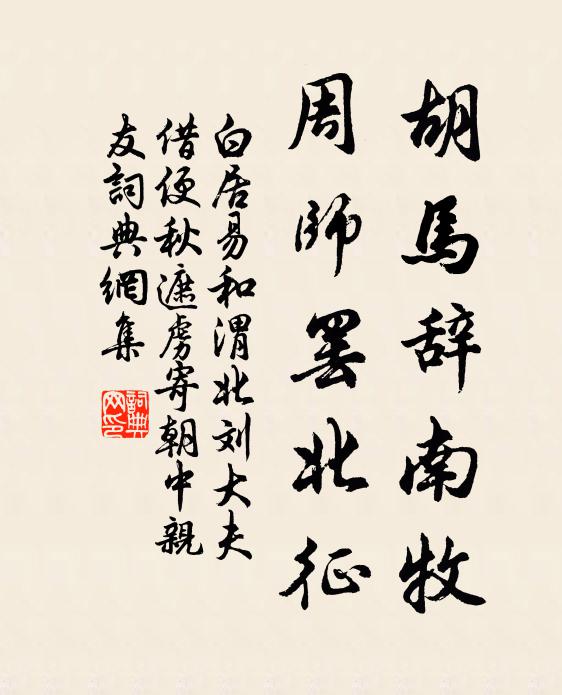 胡馬辞南牧
周師罢北征
白居易和渭北刘大夫
借便秋遮虏寄朝中親
友詞典網集
詞典
网印